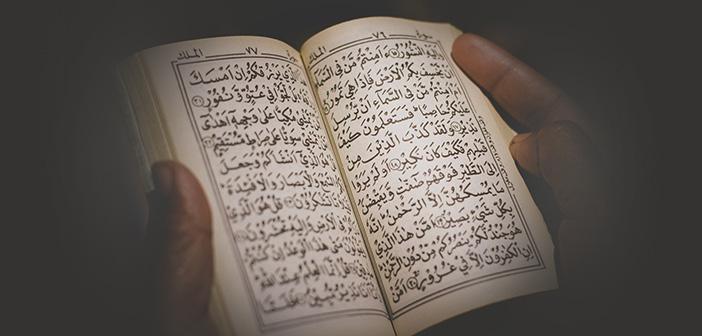 سورة ٧٦ الملك
وَاِلَيْهِ النُّشُورُ ءَاَمِنْتُمْ مَنْ فِي السَّمَاءِ
اَنْ يَخْسِفَ بِكُمُ الْاَرْضَ فَاِذَا هِيَ تَمُورُ
اَمْ اَمِنْتُمْ مَنْ فِي السَّمَاءِ اَنْ يُرْسِلَ
عَلَيْكُمْ حَاصِبًا فَسَتَعْلَمُونَ كَيْفَ
نَذِيرِ وَلَقَدْ كَذَّبَ الَّذِينَ مِنْ
قَبْلِهِمْ فَكَيْفَ كَانَ نَكِيرِ ١٨ اَوَلَمْ يَرَوْا
اِلَى الطَّيْرِ فَوْقَهُمْ صَافَّاتٍ وَيَقْبِضْنَ
مَا يُمْسِكُهُنَّ اِلَّا الرَّحْمٰنُ اِنَّهُ
بِكُلِّ شَيْءٍ بَصِيرٌ اَمَّنْ هٰذَا الَّذِي
هُوَ جُنْدٌ لَكُمْ يَنْصُرُكُمْ مِنْ دُونِ الرَّحْمٰنِ
اِنِ الْكَافِرُونَ اِلَّا فِي غُرُورٍ اَمَّنْ
سورة ٧٧ الملك
الَّذِي يَرْزُقُكُمْ اِنْ اَمْسَكَ
بَلْ لَجُّوا فِي عُتُوٍّ وَنُفُورٍ ٢١
يَمْشِي مُكِبًّا عَلٰى وَجْهِهِ اَهْدٰى
يَمْشِي سَوِيًّا عَلٰى صِرَاطٍ مُسْتَقِيمٍ
الَّذِي اَنْشَاَكُمْ وَجَعَلَ
السَّمْعَ وَالْاَبْصَارَ وَالْاَفْئِدَةَ
مَا تَشْكُرُونَ قُلْ هُوَ الَّذِي
فِي الْاَرْضِ وَاِلَيْهِ تُحْشَرُونَ
مَتٰى هٰذَا الْوَعْدُ اِنْ كُنْتُمْ
قُلْ اِنَّمَا الْعِلْمُ عِنْدَ اللّٰهِ
اَنَا نَذِيرٌ مُبِينٌ فَلَمَّا